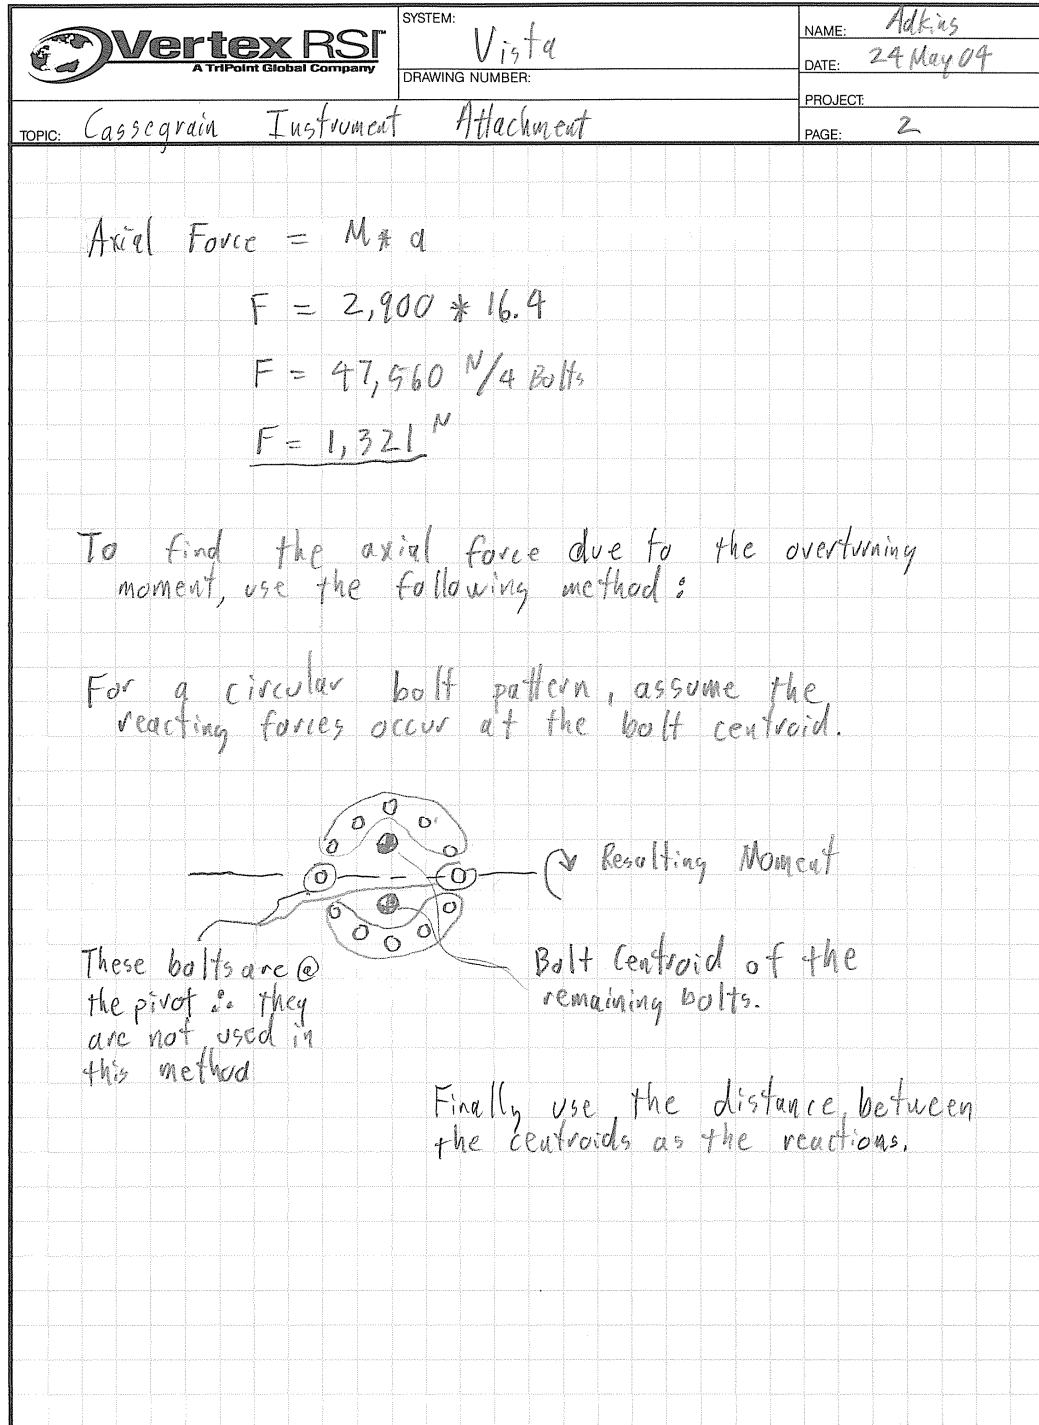 Vertex RSI
A TriPoint Global Company
SYSTEM:
Vista
DRAWING NUMBER:
NAME: Adkins
DATE: 24 May 04
PROJECT:
TOPIC: Cassegrain Instrument Attachment
PAGE: 2
Axial Force = M * a
F = 2,900 * 16.4
F = 47,560 N/4 Bolts
F = 1,321 N
To find the axial force due to the overturning
moment, use the following method:
For a circular bolt pattern, assume the
reacting forces occur at the bolt centroid.
Resulting Moment
These bolts are @
the pivot ∴ they
are not used in
this method
Bolt Centroid of the
remaining bolts.
Finally use the distance between
the centroids as the reactions.